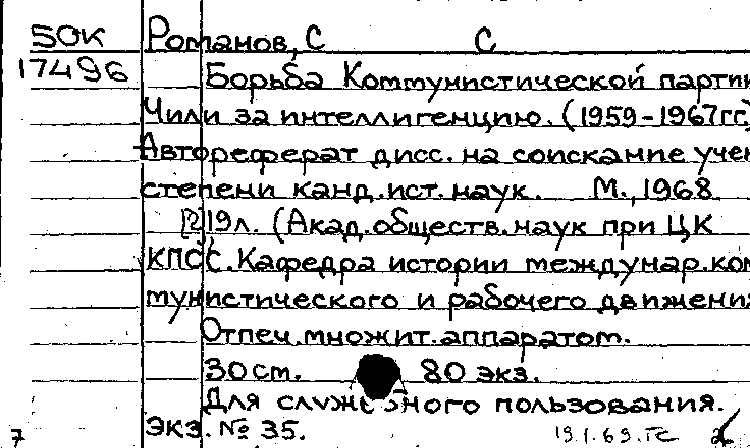 50К Романов, С С
17496 Борьба Коммунистической парти
Чили за интеллигенцию. (1959-1967гг)
Автореферат дисс. на соискание учен
степени канд. ист. наук. М., 1968
[2] 19л. (Акад. обществ. наук при ЦК
КПСС. Кафедра истории междунар. ком
мунистического и рабочего движени
Отпеч. множит. аппаратом.
30 ст. 80 экз.
Для служебного пользования.
7 экз. № 35. 19.1.69.